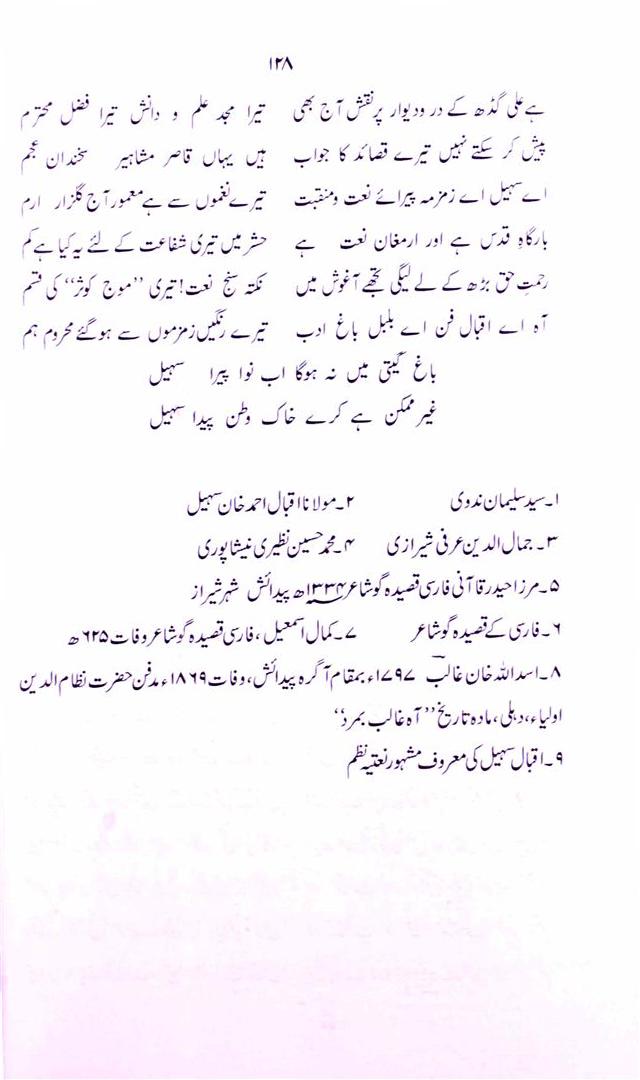 ۱۲۸
ہے علی گڈھ کے در و دیوار پر نقش آج بھی تیرا مجد علم و دانش تیرا فضل محترم
پیش کر سکتے نہیں تیرے قصائد کا جواب ہیں یہاں قاصر مشاہیر سخندان عجم
اے سہیل اے زمزمہ پیرائے نعت ومنقبت تیرے نغموں سے ہے معمور آج گلزار ارم
بارگاہِ قدس ہے اور ارمغان نعت ہے حشر میں تیری شفاعت کے لئے یہ کیا ہے کم
رحمتِ حق بڑھ کے لے لیگی تجھے آغوش میں نکتہ سنج نعت! تیری ‘‘موج کوثر’’ کی قسم
آہ اے اقبال فن اے بلبل باغ ادب تیرے رنگیں زمزموں سے ہوگئے محروم ہم
باغ گیتی میں نہ ہوگا اب نوا پیرا سہیل
غیر ممکن ہے کرے خاک وطن پیدا سہیل
۱۔سید سلیمان ندوی ۲۔مولانا اقبال احمد خان سہیل
۳۔جمال الدین عرفی شیرازی ۴۔محمد حسین نظیری نیشاپوری
۵۔مرزا حیدر قاآنی فارسی قصیدہ گو شاعر ۱۳۳۴ھ پیدائش شہر شیراز
۶۔فارسی کے قصیدہ گو شاعر ۷۔کمال اسمعیل، فارسی قصیدہ گو شاعر وفات ۶۲۵ھ
۸۔اسد اللہ خان غالب ۱۷۹۷ء بمقام آگرہ پیدائش، وفات ۱۸۶۹ء مدفن حضرت نظام الدین
اولیاء، دہلی، مادہ تاریخ ‘‘آہ غالب بمرد’’
۹۔اقبال سہیل کی معروف مشہور نعتیہ نظم